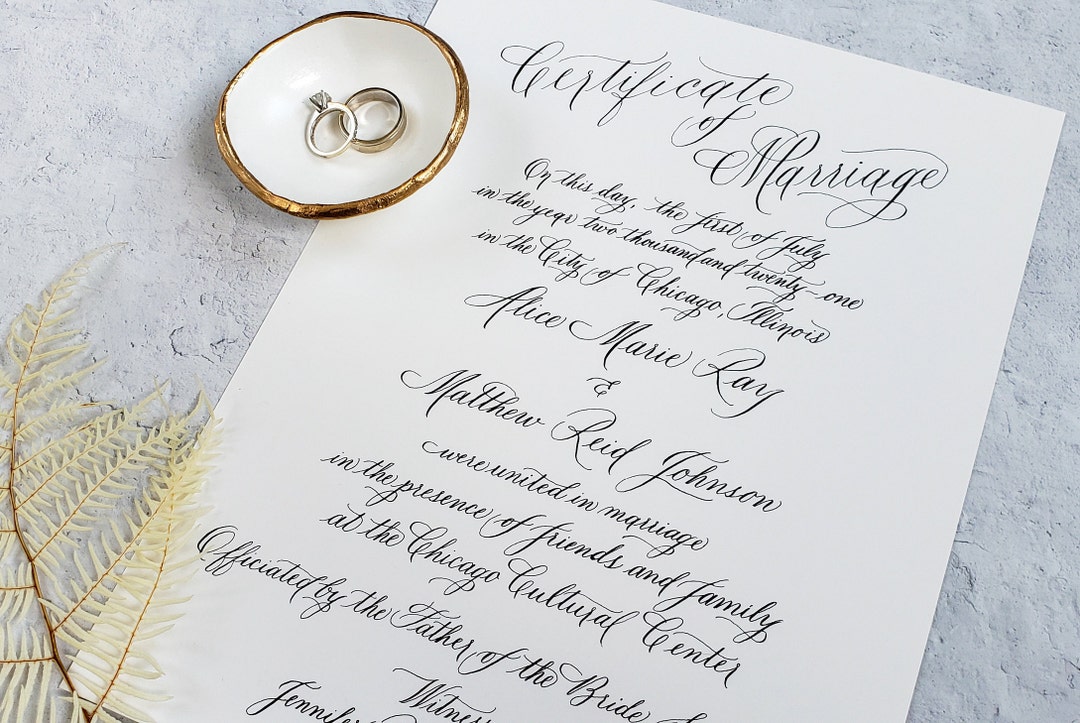 Certificate
of
Marriage
On this day, the first of July
in the year two thousand and twenty-one
in the City of Chicago, Illinois
Alice Marie Ray
&
Matthew Reid Johnson
were united in marriage
in the presence of friends and family
at the Chicago Cultural Center
Officiated by the Father of the Bride
Witness
Jennifer